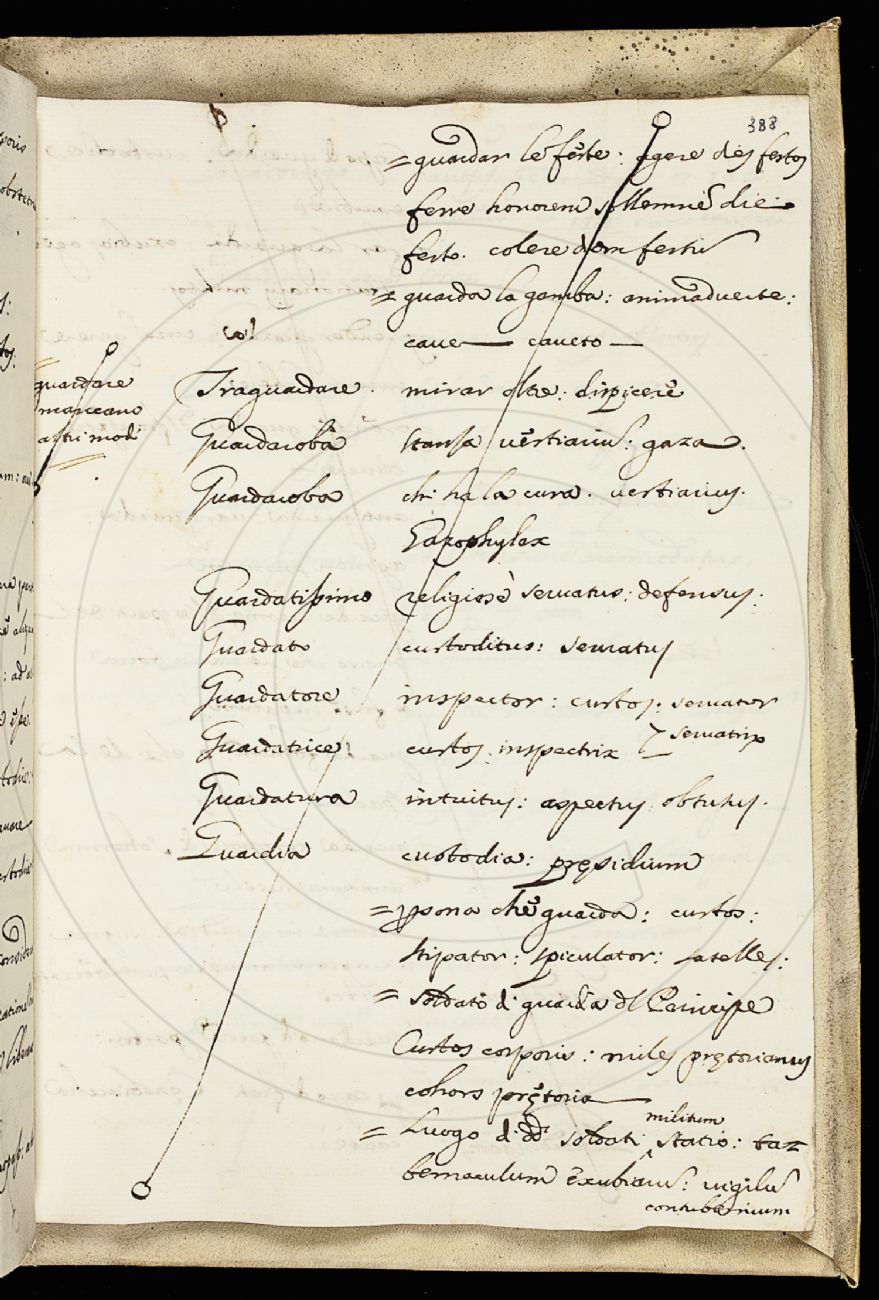 388
= guardar le feste: agere dies festos
ferre honorem sollemnè die
festo. colere dem festũ
= guarda la gamba: animãdverte:
cave — caveto —
guardare
mancano
altri modi
Traguardare. mirar oltre: dispicere
Guardarobba stansa vestiariũ: gaza.
Guardaroba chi ha la cura. vestiarius.
Gazophylax
Guardatissimo religiosè servatus: defensus:
Guardato custoditus: servatus
Guardatore inspector: custos: servator
Guardatrice custos: inspectrix servatrix
Guardatura intuitus: aspectus obtutus.
Guardia custodia: pręsidium
= psona che guarda: custos:
stipator: spiculator: satelles:
= soldato di guardia dl Principe
Custos corporis: miles pretorianus
cohors pretoria —
= Luogo di dd. soldati militum statio: ta=
bernaculum exubiariũ: vigilũ
contubernium